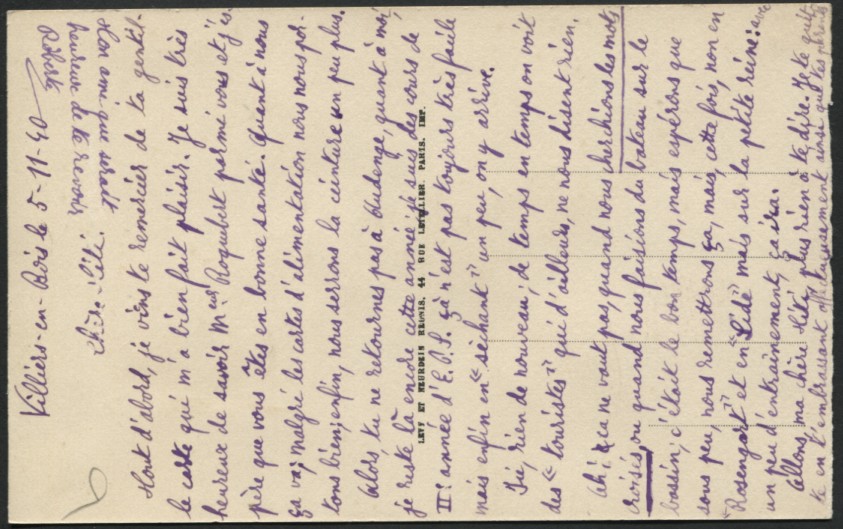 Villiers-en-Bois le 5-11-40
Chère Lili.
Tout d'abord, je viens te remercier de ta gentil-
le carte qui m'a bien fait plaisir. Je suis très
heureuse de savoir Mme Roquebert parmi vous et j'es-
père que vous êtes en bonne santé. Quant à nous
ça va; malgré les cartes d'alimentation nous nous por-
tons bien; enfin, nous serrons la ceinture un peu plus.
Alors, tu ne retournes pas à Audenge, quant à moi,
je reste là encore cette année; je suis des cours de
IIe année d'E.P.S. çà n'est pas toujours très facile
mais enfin en "sèchant" un peu, on y arrive.
Ici, rien de nouveau; de temps en temps on voit
des "touristes" qui d'ailleurs, ne nous disent rien.
Ah! ça ne vaut pas, quand nous cherchions les mots
croisés, ou quand nous faisions du bateau sur le
bassin; c'était le bon temps, mais espérons que
sous peu, nous remettrons ça, mais, cette fois, non en
"Rosengart" et en "Lidé" mais sur la petite reine: avec
un peu d'entraînement, ça ira.
Allons, ma chère Lili, plus rien à te dire. Je te quit-
te en t'embrassant affectueusement ainsi que tes parents
Ton amie qui serait
heureuse de te revoir.
LEVY ET NEURDEIN REUNIS, 44 RUE LETELLIER. PARIS. IMP.